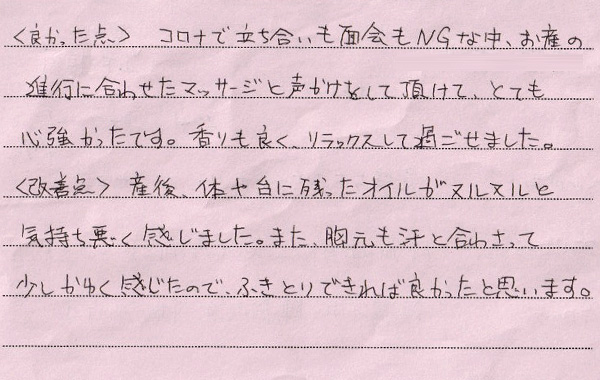 〈良かった点〉 コロナで立ち合いも面会もNGな中、お産の
進行に合わせたマッサージと声がけをして頂けて、とても
心強かったです。香りも良く、リラックスして過ごせました。
〈改善点〉 産後、体や台に残ったオイルがヌルヌルと
気持ち悪く感じました。また、胸元も汗と合わさって
少しかゆく感じたので、ふきとりできれば良かったと思います。